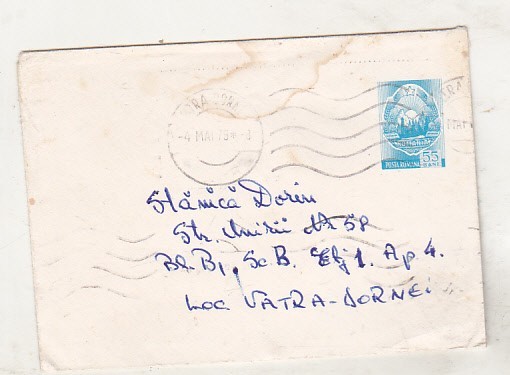 VATRA DORNEI
-4 MAI 75
POSTA ROMANA
55
BANI
Stănică Dorin
Str. Unirii Nr 58
Bl. B1, Sc B. Etj 1. Ap 4.
Loc VATRA-DORNEI